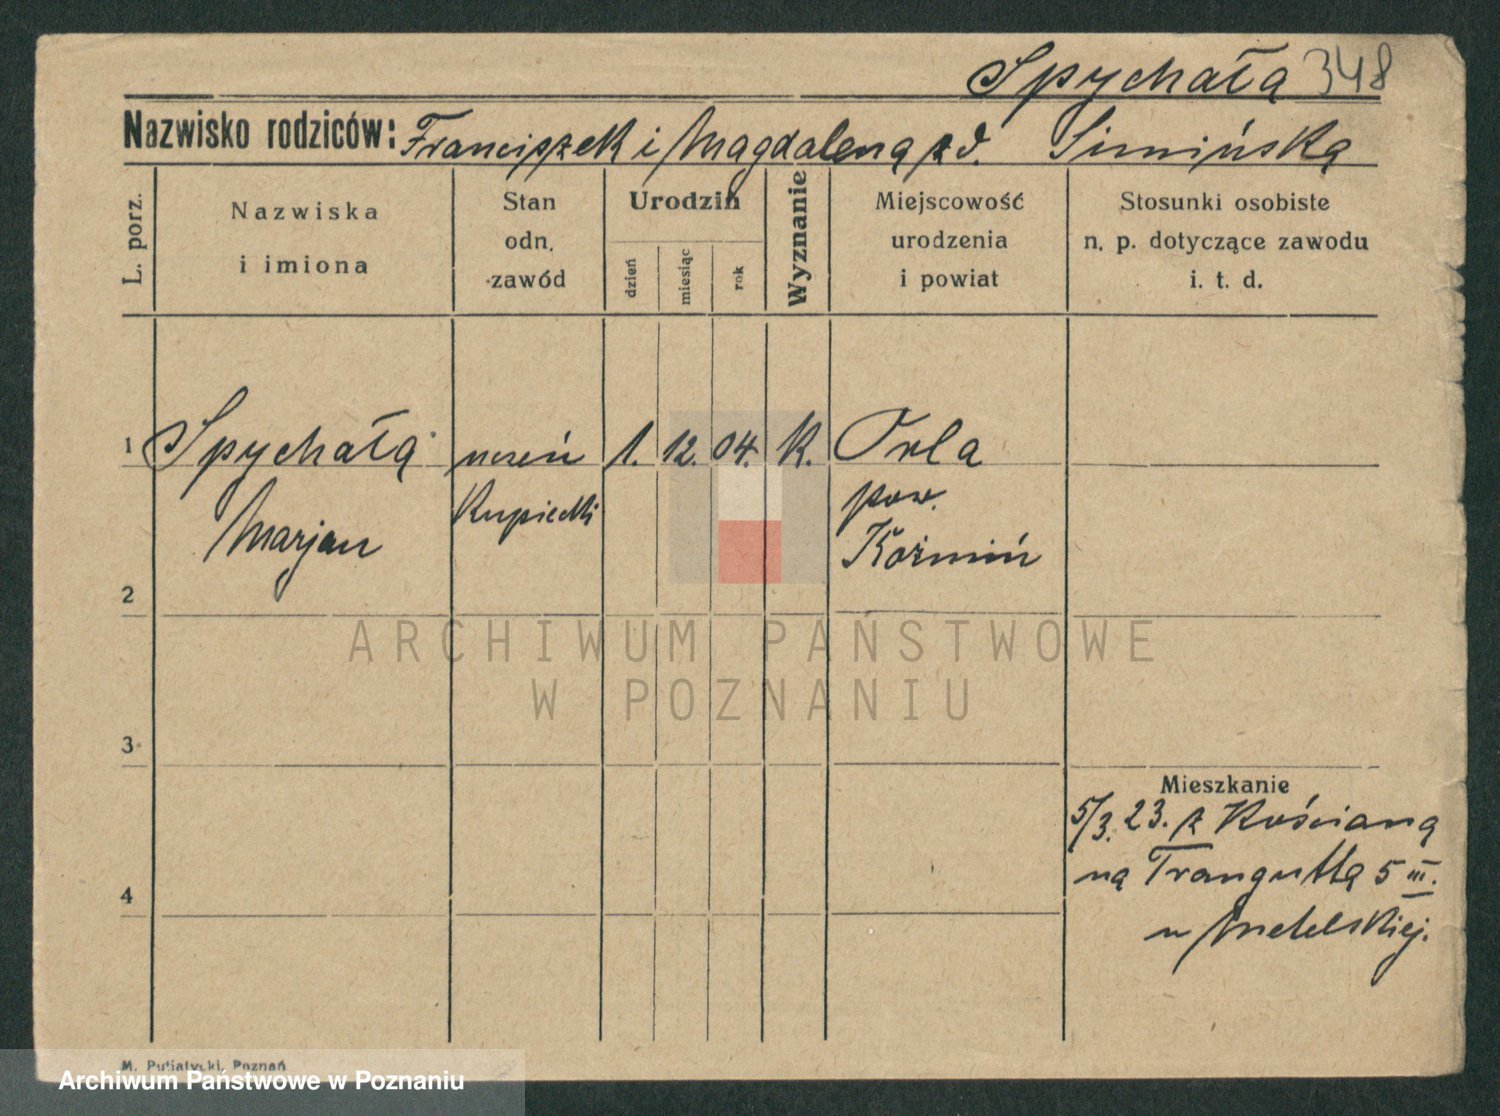 Spychała 348
Nazwisko rodziców: Franciszek i Magdalena z d. Simińska
L. porz.
Nazwiska
i imiona
Stan
odn.
zawód
Urodzin
dzień
miesiąc
rok
Wyznanie
Miejscowość
urodzenia
i powiat
Stosunki osobiste
n. p. dotyczące zawodu
i. t. d.
1 Spychała uczeń 1. 12. 04. K. Orla
kupiecki pow.
Marjan Koźmin
2
ARCHIWUM PAŃSTWOWE
W POZNANIU
3
Mieszkanie
5/3. 23. z Kościana
na Traugutta 5 III.
4
u Metelskiej.
M. Putiatycki, Poznań
Archiwum Państwowe w Poznaniu